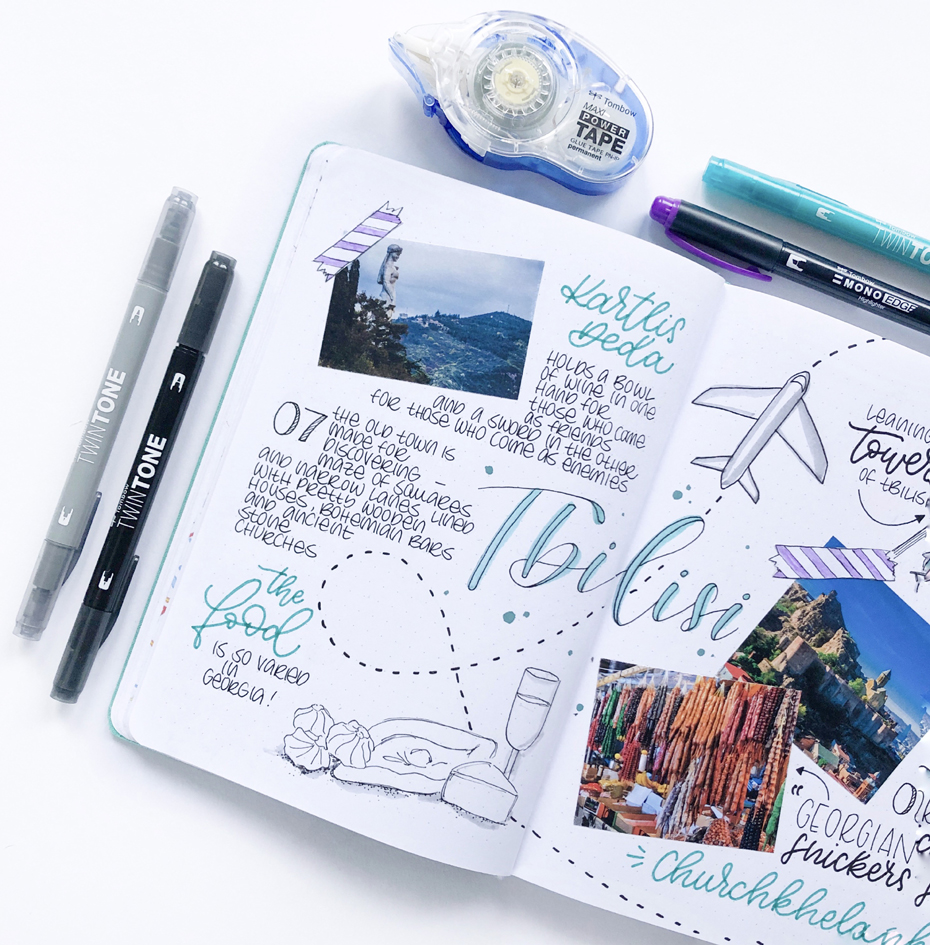 Tombow
MAXI
POWER
TAPE
GLUE TAPE
permanent
TWINTONE
TWINTONE
Tombow
MONO EDGE
Highlighter
Kartlis
Deda
HOLDS A BOWL
OF WINE IN ONE
HAND FOR
THOSE WHO COME
AS FRIENDS
AND A SWORD IN THE OTHER
FOR THOSE WHO COME AS ENEMIES
07
THE OLD TOWN IS
MADE FOR
DISCOVERING –
MAZE OF SQUARES
AND NARROW LANES LINED
WITH PRETTY WOODEN
HOUSES, BOHEMIAN BARS
AND ANCIENT
STONE
CHURCHES
Tbilisi
the
food
IS SO VARIED
IN
GEORGIA!
LEANING
tower
OF TBILISI
"GEORGIAN
snickers
churchkhela